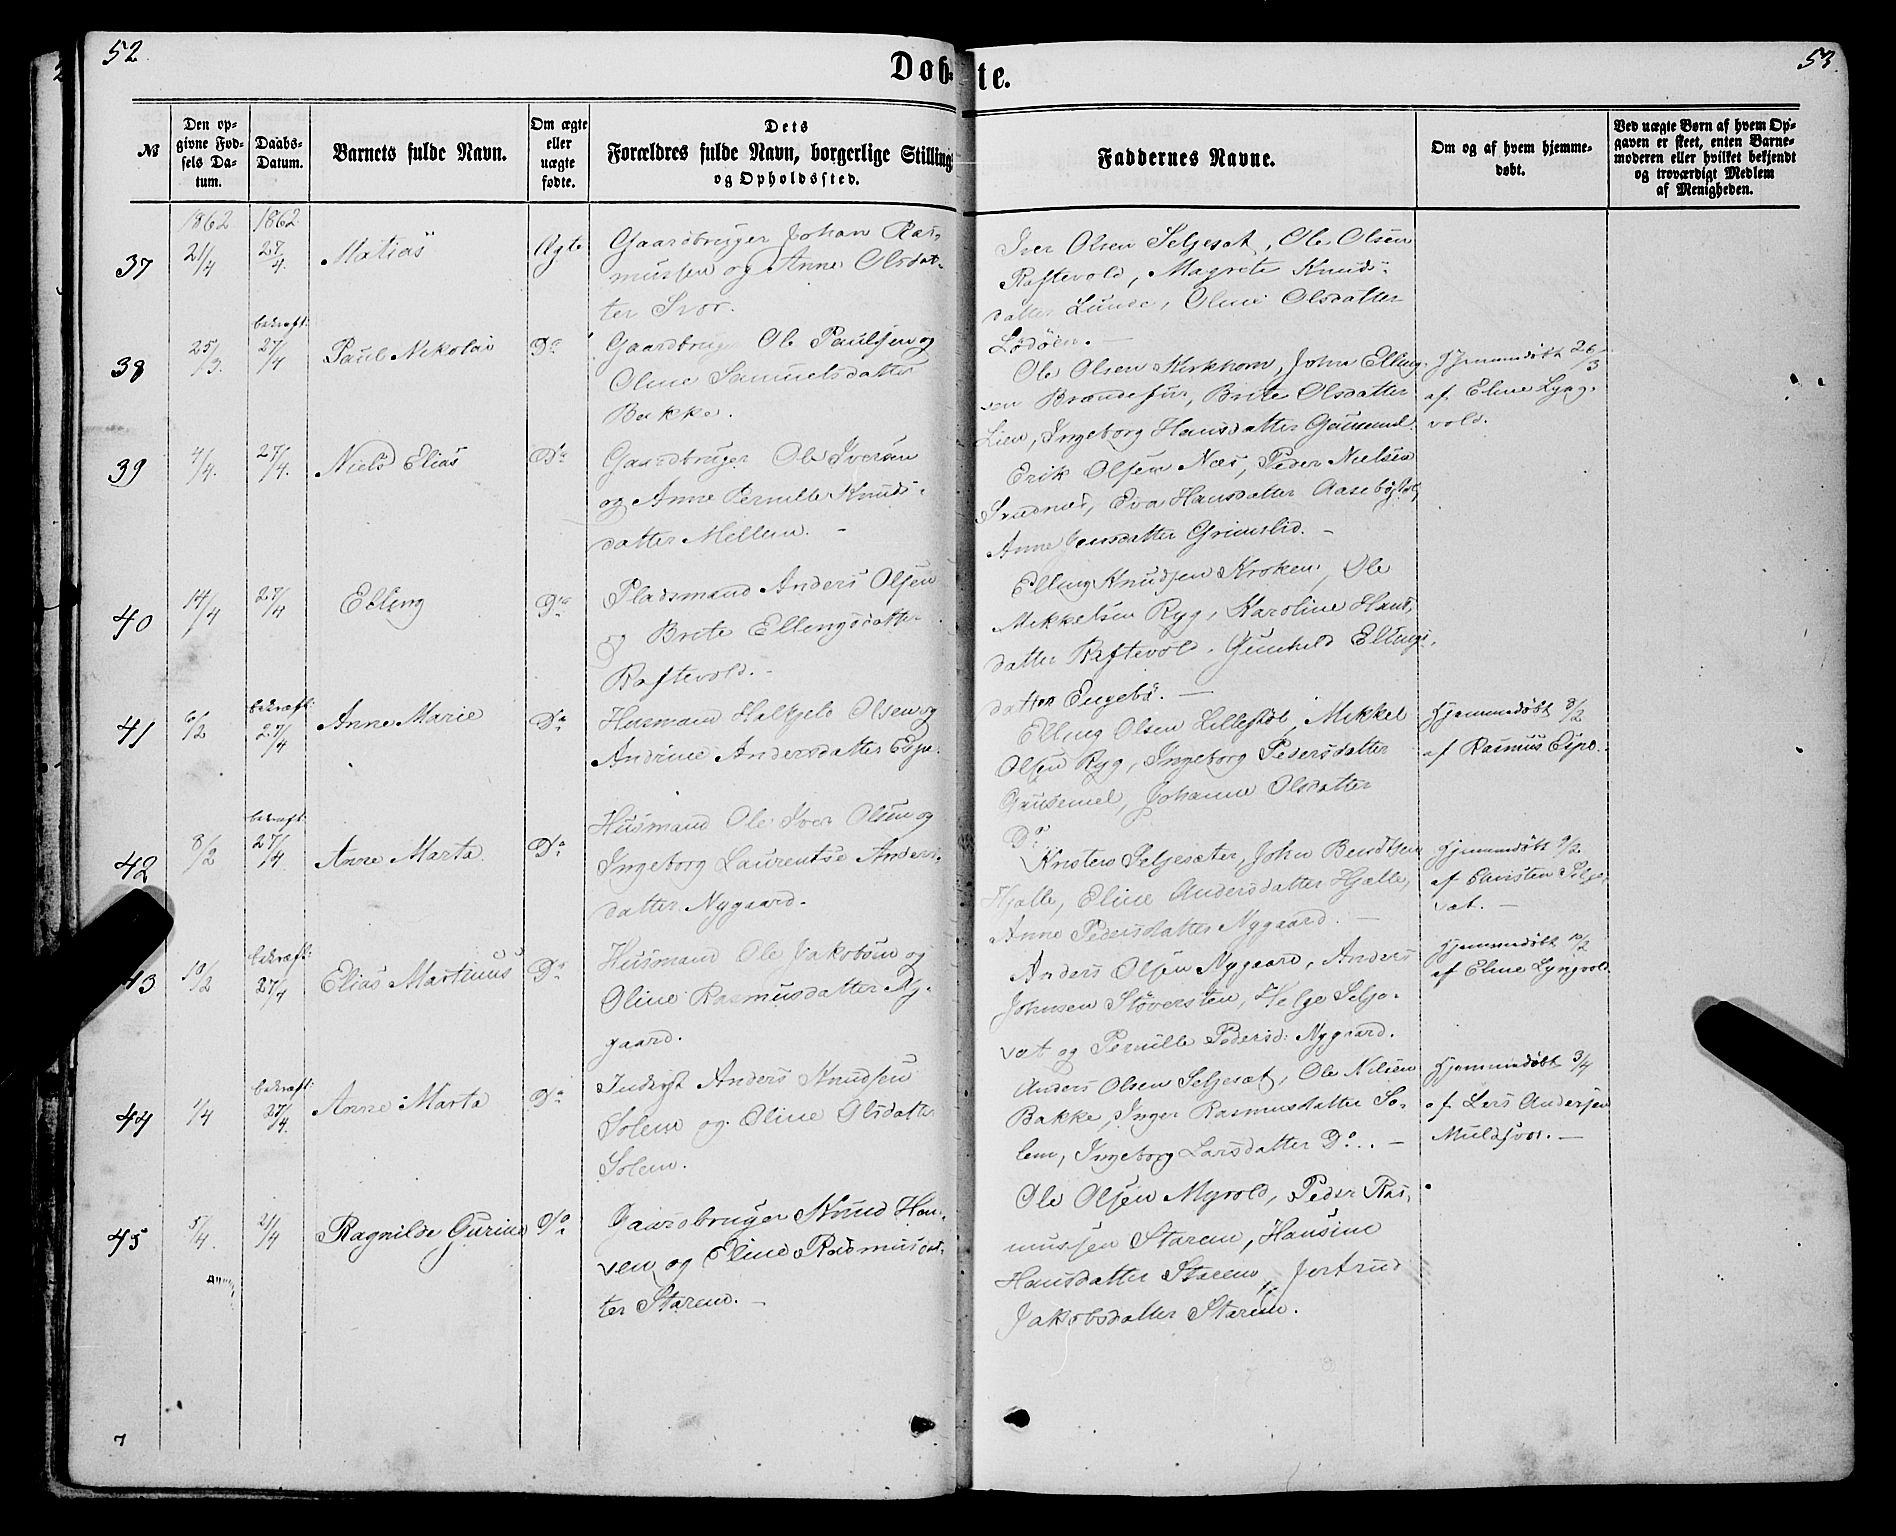 52.
53.
Døb-
te.
№
Den op-
givne Fød-
sels Da-
tum.
Daabs-
Datum.
Barnets fulde Navn.
Om ægte
eller
uægte
fødte.
Dets
Forældres fulde Navn, borgerlige Stilling
og Opholdssted.
Faddernes Navne.
Om og af hvem hjemme-
døbt.
Ved uægte Børn af hvem Op-
gaven er skeet, enten Barne-
moderen eller hvilket bekjendt
og troværdigt Medlem
af Menigheden.
1862 1862
37 21/4 27/4. Matias Ægte
Gaardbruger Johan Ras-
mussen og Anne Olsdat-
ter Svor.
Iver Olsen Seljesæt, Ole Olsen
Raftevold, Magrete Knuds-
datter Lunde, Oline Olsdatter
Lødøen. —
38 25/3. bekræft: 27/4 Paul Nikolai Do
Gaardbrug Ole Paulsen og
Oline Samuelsdatter
Bakke.
Ole Olsen Kirkhorn, John Elling-
sen Brændefur, Brite Olsdatter
Lien, Ingeborg Hansdatter Gausemel
Hjemmedøbt 26/3
af Eline Lyng-
vold.
39 4/4. 27/4. Niels Elias Do
Gaardbruger Ole Iversen
og Anne Pernille Knuds-
datter Mellem. —
Erik Olsen Næs, Peder Nielsen
Anne datter Grimslid. —
40 14/4 27/4 Elling Do
Pladsmand Anders Olsen
og Brite Ellingsdatter
Raftevold. —
Elling Knudsen Kroken, Ole
Mikkelsen Ryg, Karoline Hans-
datter Raftevold, Gunhild Ellings-
datter Engebø. —
41 6/2 bekræft: 27/4 Anne Marie Do
Husmand Halkjeld Olsen og
Andrine Andersdatter Espe.
Elling Olsen Lillestøl, Mikkel
Olsen Ryg, Ingeborg Pedersdatter
Gausemel, Johanne Olsdatter
Do
Hjemmedøbt 8/2
af Rasmus Espe.
42 8/2 bekræft: 27/4 Anne Marta Do
Husmand Ole Iver Olsen og
Ingeborg Laurentse Anders-
datter Nygaard.
Kristen Seljesæter, John Bendtsen
Hjelle, Eline Andersdatter Hjelle,
Anne Pedersdatter Nygaard. —
Hjemmedøbt 9/2
af Christen Selje-
sæt. —
43 10/2 bekræft: 27/4 Elias Martinus Do
Husmand Ole Jakobsen og
Oline Rasmusdatter Ny-
gaard.
Anders Olsen Nygaard, Anders
Johnsen Støversten, Helge Selje-
sæt og Pernille Pedersd: Nygaard.
Hjemmedøbt 10/2
af Eline Lyngvold.
44 1/4 bekræft: 27/4. Anne Marta Do
Inderst Anders Knudsen
Solem og Oline Olsdatter
Solem.
Anders Olsen Seljesæt, Ole Nilsen
Bakke, Inger Rasmusdatter So-
lem, Ingeborg Larsdatter Do. —
Hjemmedøbt 3/4
af Lars Andersen
Muldsvor. —
45 5/4. 21/4 Ragnilde Gurine Do
Gaardbruger Knud Han-
sen og Eline Rasmusdat-
ter Starem. —
Ole Olsen Myrold, Peder Ras-
mussen Starem, Hansine
Hansdatter Starem, Jertrud
Jakobsdatter Starem.
7